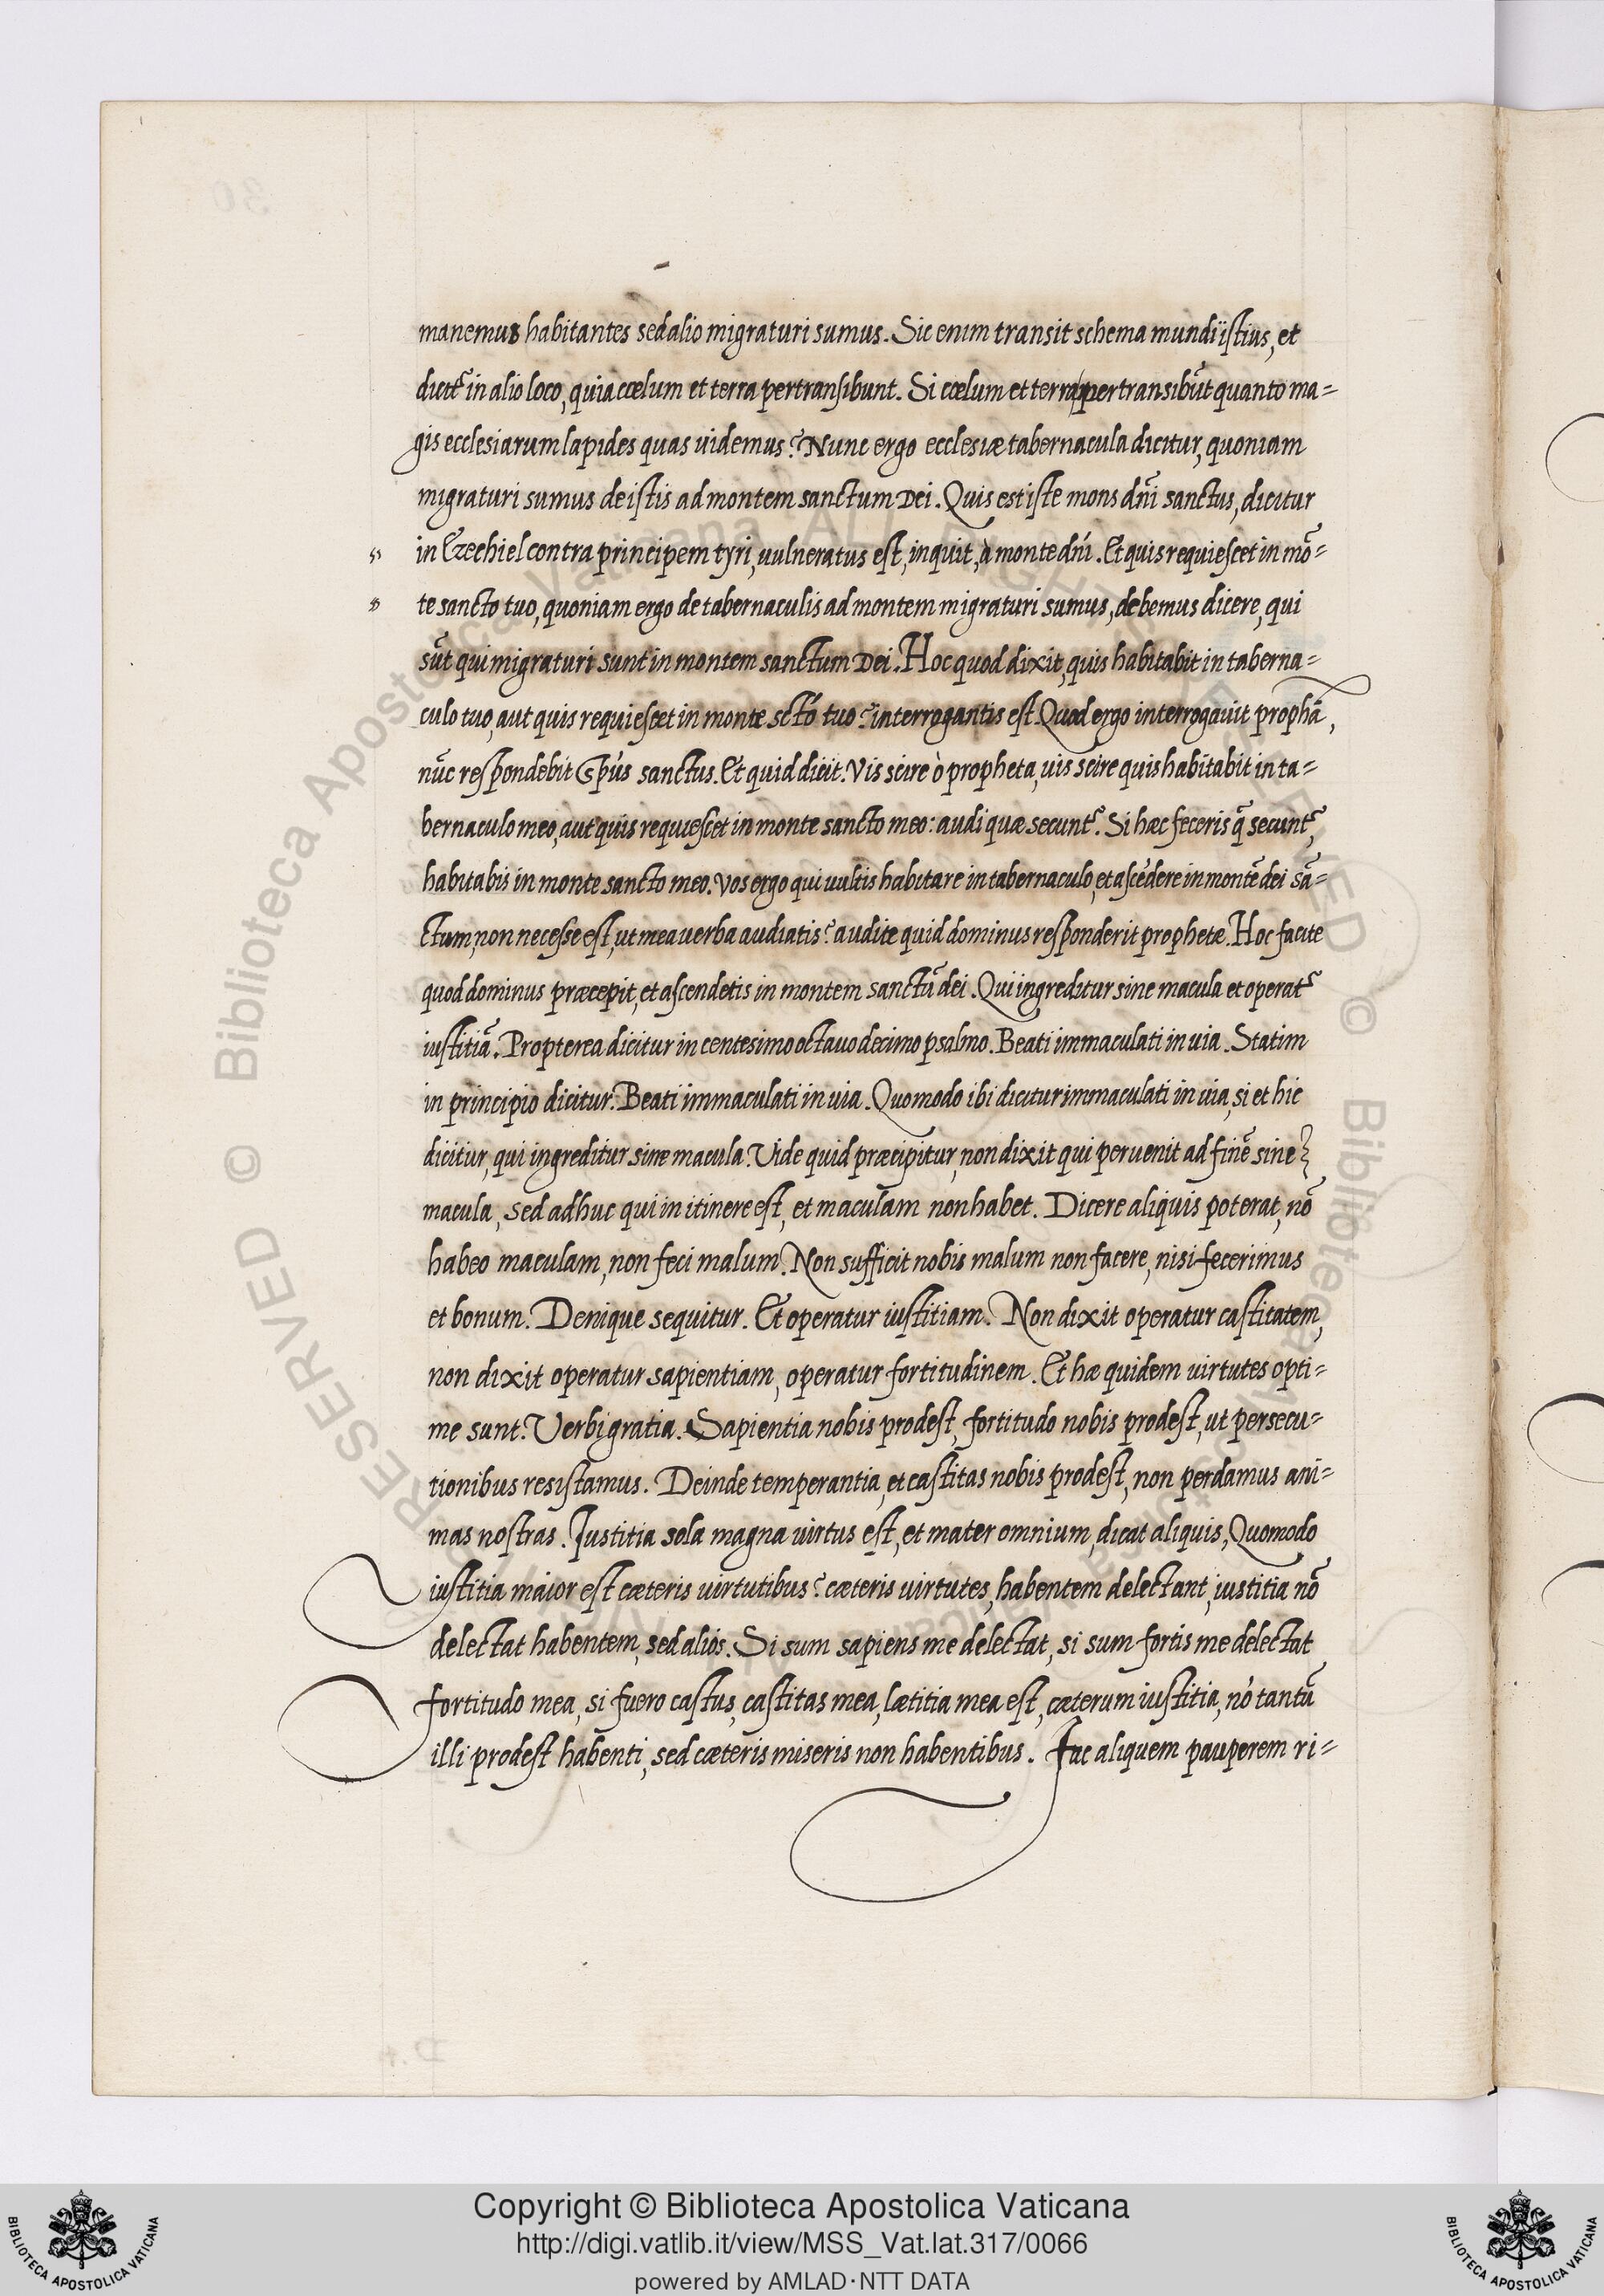 manemus habitantes sed alio migraturi sumus. Sic enim transit schema mundi istius, et
dicit̃ in alio loco, quia cœlum et terra pertransibunt. Si cœlum et terra pertransibũt quanto ma=
gis ecclesiarum lapides quas uidemus? Nunc ergo ecclesiæ tabernacula dicitur, quoniam
migraturi sumus de istis ad montem sanctum Dei. Quis est iste mons dñi sanctus, dicitur
in Ezechiel contra principem tyri, uulneratus est, inquit, à monte dñi. Et quis requiescet in mõ=
te sancto tuo, quoniam ergo de tabernaculis ad montem migraturi sumus, debemus dicere, qui
sũt qui migraturi sunt in montem sanctum Dei. Hoc quod dixit, quis habitabit in taberna=
culo tuo, aut quis requiescet in monte sctõ tuo? interrogantis est. Quod ergo interrogauit prophã,
nũc respondebit Spũs sanctus. Et quid dicit. Vis scire ò propheta, uis scire quis habitabit in ta=
bernaculo meo, aut quis requiescet in monte sancto meo: audi quæ secunt̃. Si hæc feceris q̃ secunt̃,
habitabis in monte sancto meo. Vos ergo qui uultis habitare in tabernaculo, et ascẽdere in montẽ dei sã=
ctum, non necesse est, ut mea uerba audiatis? audite quid dominus responderit prophetæ. Hoc facite
quod dominus præcepit, et ascendetis in montem sanctũ dei. Qui ingreditur sine macula et operat̃
iustitiã. Propterea dicitur in centesimo octauo decimo psalmo. Beati immaculati in uia. Statim
in principio dicitur. Beati immaculati in uia. Quomodo ibi dicitur immaculati in uia, si et hic
dicitur, qui ingreditur sine macula. Vide quid præcipitur, non dixit qui peruenit ad finẽ sine
macula, sed adhuc qui in itinere est, et maculam non habet. Dicere aliquis poterat, nõ
habeo maculam, non feci malum. Non sufficit nobis malum non facere, nisi fecerimus
et bonum. Denique sequitur. Et operatur iustitiam. Non dixit operatur castitatem,
non dixit operatur sapientiam, operatur fortitudinem. Et hæ quidem uirtutes opti=
me sunt. Verbi gratia. Sapientia nobis prodest, fortitudo nobis prodest, ut persecu=
tionibus resistamus. Deinde temperantia, et castitas nobis prodest, non perdamus ani=
mas nostras. Iustitia sola magna uirtus est, et mater omnium, dicat aliquis, Quomodo
iustitia maior est cæteris uirtutibus? cæteris uirtutes, habentem delectant, iustitia nõ
delectat habentem, sed aliós. Si sum sapiens me delectat, si sum fortis me delectat
fortitudo mea, si fuero castus, castitas mea, lætitia mea est, cæterum iustitia, nõ tantũ
illi prodest habenti, sed cæteris miseris non habentibus. Fac aliquem pauperem ri=
Copyright © Biblioteca Apostolica Vaticana
http://digi.vatlib.it/view/MSS_Vat.lat.317/0066
powered by AMLAD·NTT DATA
BIBLIOTECA APOSTOLICA VATICANA
BIBLIOTECA APOSTOLICA VATICANA